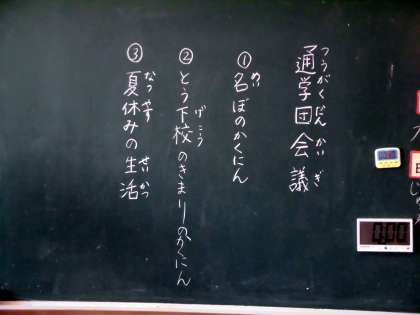 通学団会議
つうがくだんかいぎ
①名ぼのかくにん
めい
②とう下校のきまりのかくにん
げこう
③夏休みの生活
なつやすせいかつ
0:00